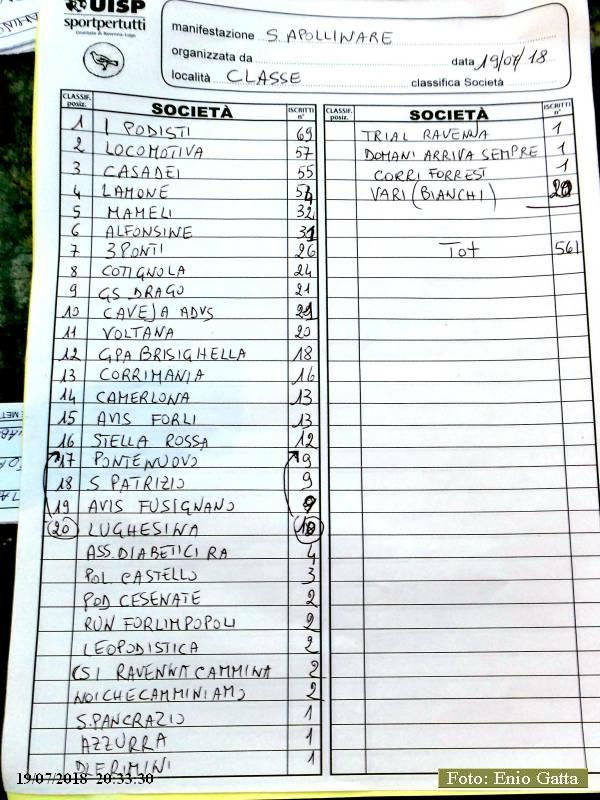 UISP
sportpertutti
Comitato di Ravenna-Lugo
manifestazione S. APOLLINARE
organizzata da data 19/07/18
località CLASSE classifica Società
CLASSIF. posiz. SOCIETÀ ISCRITTI n°
1 I PODISTI 69
2 LOCOMOTIVA 57
3 CASADEI 55
4 LAMONE 54
5 MAMELI 32
6 ALFONSINE 31
7 3 PONTI 26
8 COTIGNOLA 24
9 GS DRAGO 21
10 CAVEJA ADVS 21
11 VOLTANA 20
12 GPA BRISIGHELLA 18
13 CORRIMANIA 16
14 CAMERLONA 13
15 AVIS FORLI 13
16 STELLA ROSSA 12
17 PONTENUOVO 9
18 S PATRIZIO 9
19 AVIS FUSIGNANO 9
20 LUGHESINA 10
ASS. DIABETICI RA 4
POL CASTELLO 3
POD CESENATE 2
RUN FORLIMPOPOLI 2
LEOPODISTICA 2
CSI RAVENNA CAMMINA 2
NOICHECAMMINIAMO 2
S. PANCRAZIO 1
AZZURRA 1
DLF RIMINI 1
CLASSIF. posiz. SOCIETÀ ISCRITTI n°
TRIAL RAVENNA 1
DOMANI ARRIVA SEMPRE 1
CORRI FORREST 1
VARI (BIANCHI) 20
Tot 561
19/07/2018 20:33:30
Foto: Enio Gatta